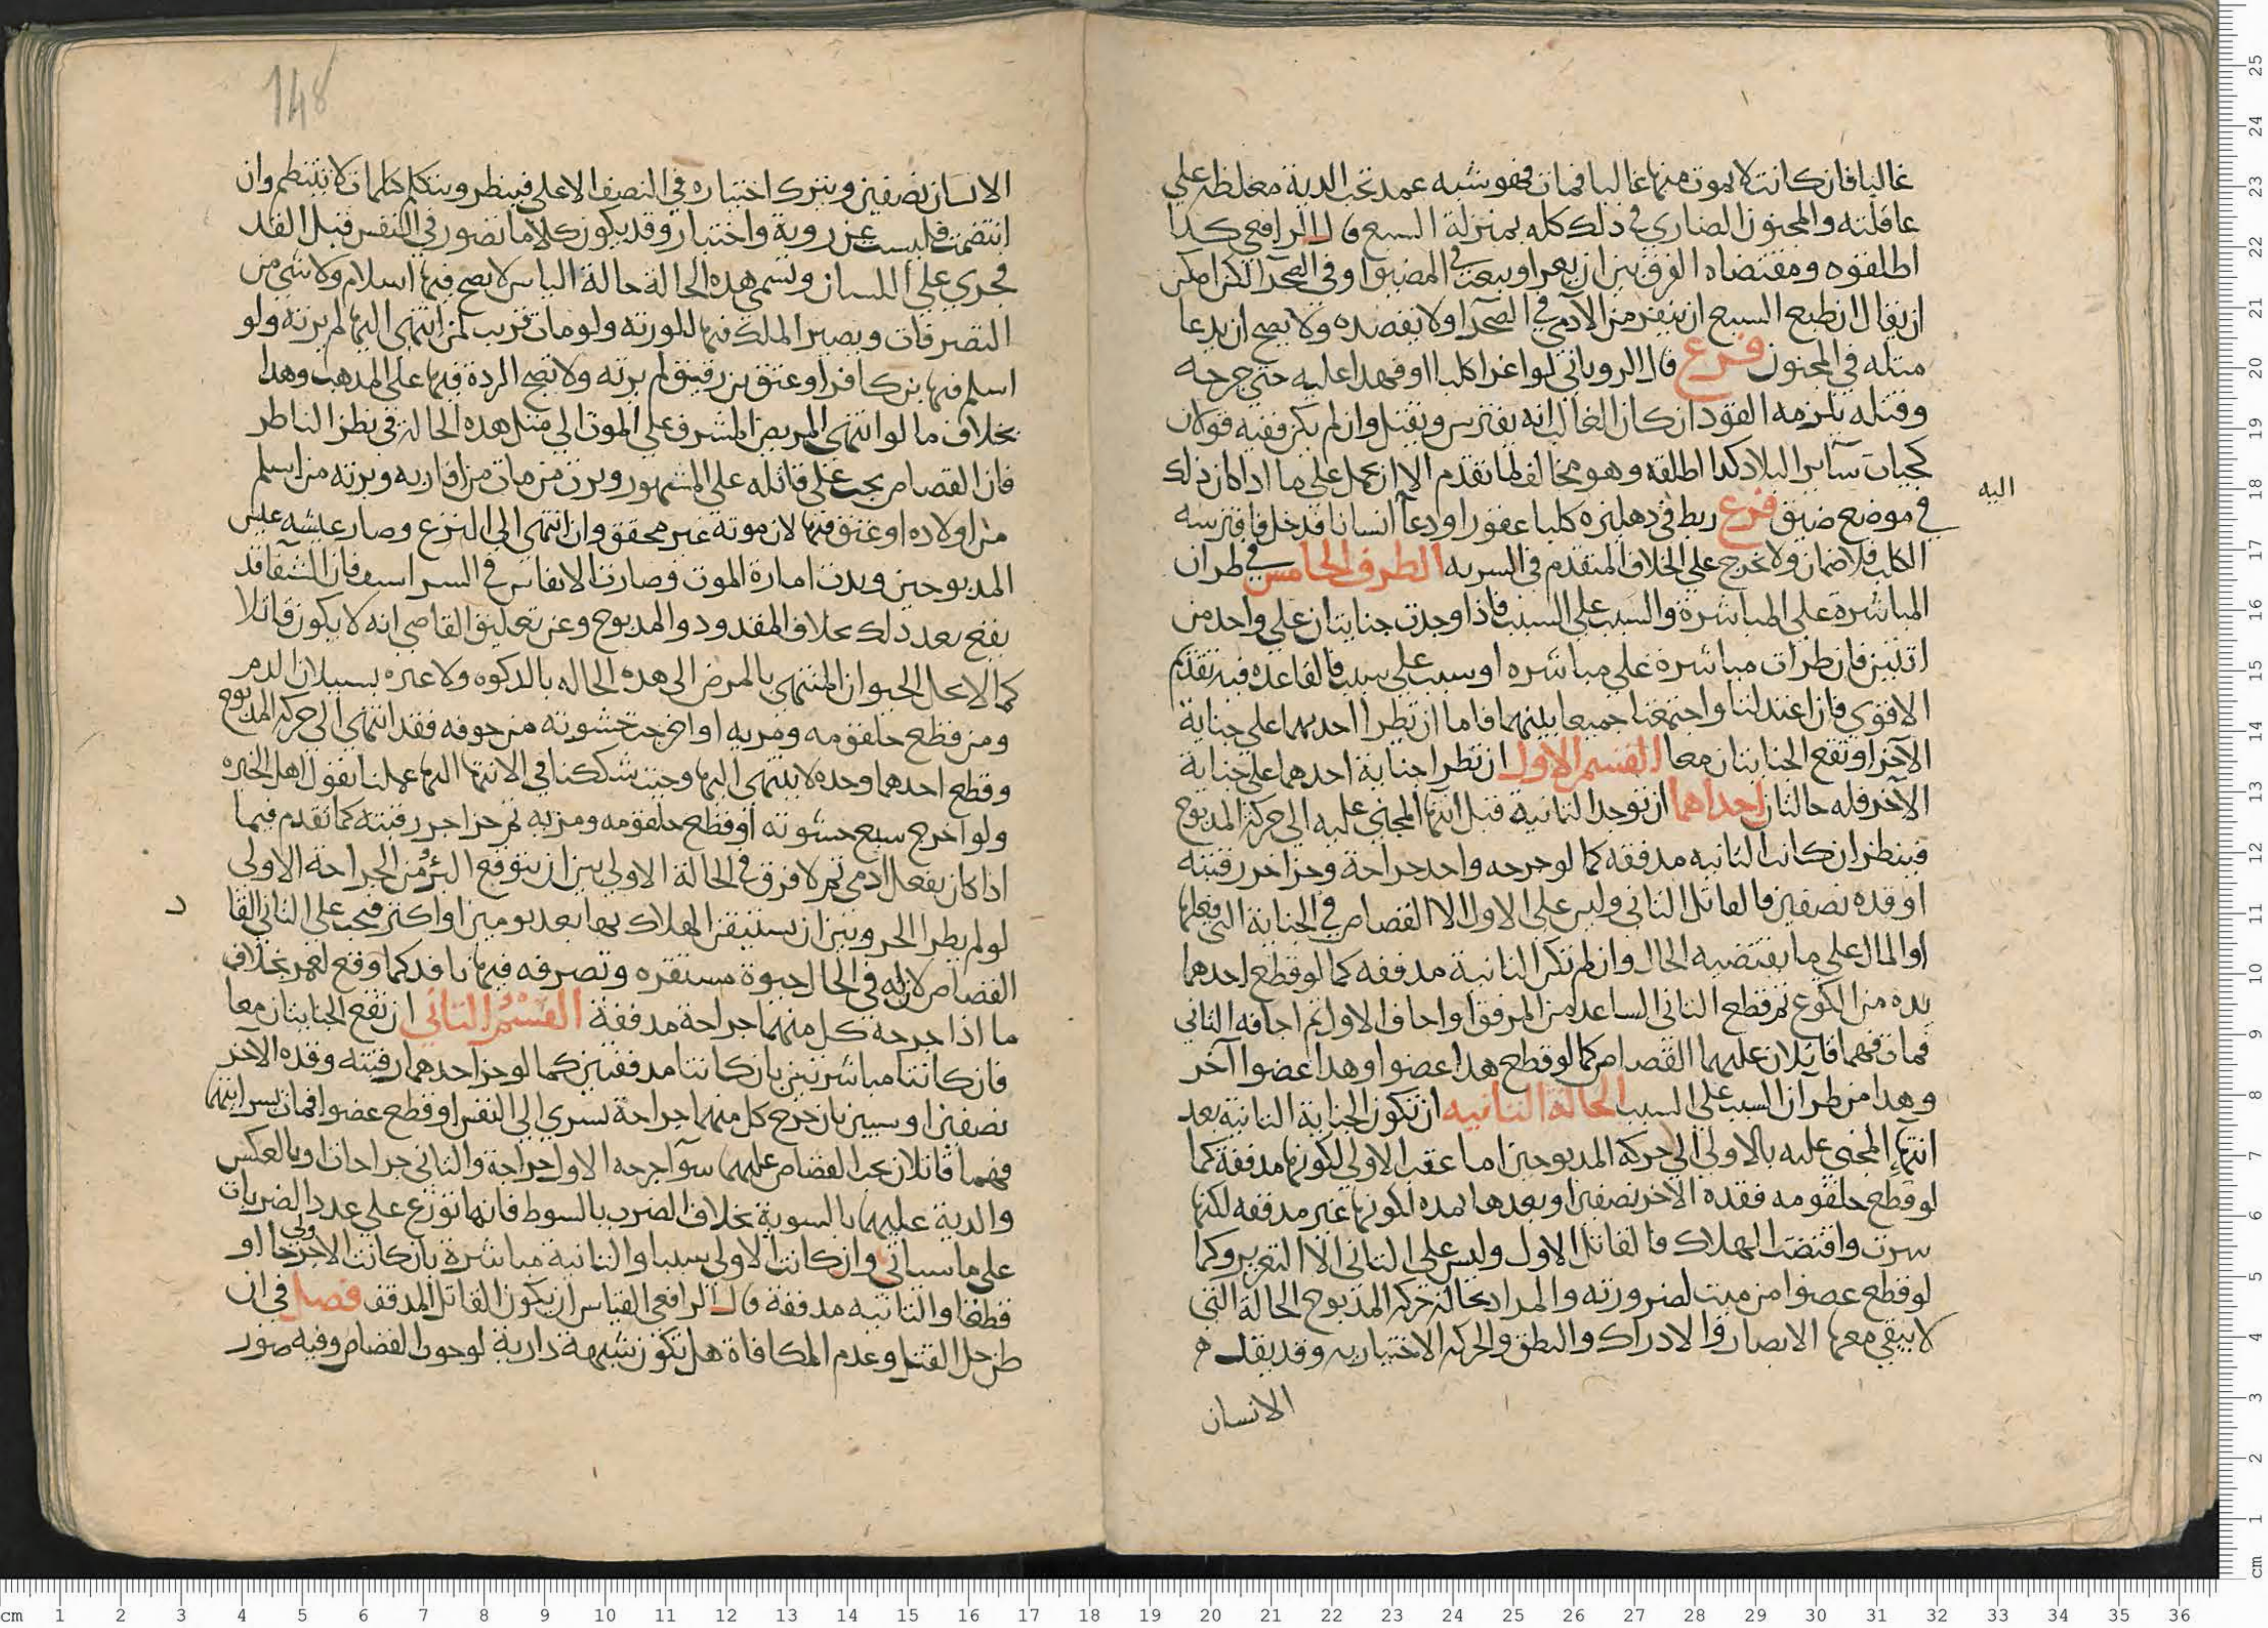 غالبا فان كانت لا يموت منها غالبا فمات فهو شبه عمد تجب الدية مغلظة علي
عاقلته والمجنون الضاري في ذلك كله بمنزلة السبع قال الرافعي كذا
اطلقوه ومقتضاه الفرق بين ان يغري او يبعث في المضيق او في الصحرا لكن امكن
ان يقال ان طبع السبع ان ينفر من الادمي في الصحرا ولا يقصده ولا يصح ان يدعا
مثله في المجنون فرع قال الروياني لو اغرا كلبا او فهدا عليه حتي جرحه
وقتله يلزمه القود ان كان الغالب انه يفترس ويقتل وان لم يكن ففيه قولان
كحيات ساير البلاد كذا اطلقه وهو مخالف لما تقدم الا ان يحمل علي ما اذا كان ذلك
اليه
في موضع ضيق فرع ربط في دهليزه كلبا عقورا ودعا انسانا فدخل فافترسه
الكلب فلا ضمان ولا يخرج علي الخلاف المتقدم في السريه الطرف الخامس في طران
المباشرة علي المباشرة والسبب علي السبب فاذا وجدت جنايتان علي واحد من
اثنين فان طرات مباشرة علي مباشره او سبب علي سبب فالقاعده فيه تقدم
الاقوي فان اعتدلتا واجتمعتا جميعا بينهما فاما ان تطرا احديهما علي جناية
الاخر او تقع الجنايتان معا القسم الاول ان تطرا جناية احدهما علي جناية
الآخر فله حالتان احداهما ان توجد الثانية قبل انتها المجني عليه الي حركة المذبوح
فينظر ان كانت الثانيه مدففه كما لو جرحه واحد جراحة وحز اخر رقبته
او قده نصفين فالقاتل الثاني وليس علي الاول الا القصاص في الجناية التي فعلها
او المال علي ما يقتضيه الحال وان لم تكن الثانية مدففه كما لو قطع احدهما
يده من الكوع ثم قطع الثاني الساعد من المرفق او اجاف الاول ثم اجافه الثاني
فمات فهما قاتلان عليهما القصاص كما لو قطع هذا عضوا وهذا عضوا آخر
وهذا من طرآن السبب علي السبب الحالة الثانيه ان تكون الجناية الثانية بعد
انتهاء المجني عليه بالاولي الي حركة المذبوحين اما عقب الاولي لكونها مدففة كما
لو قطع حلقومه فقده الاخر نصفين او بعدها بمده لكونها غير مدففه لكنها
سرت واقتضت الهلاك فالقاتل الاول وليس علي الثاني الا التعزير وكما
لو قطع عضوا من ميت لضرورته والمراد بحالة حركه المذبوح الحالة التي
لا يبقي معها الابصار والادراك والنطق والحركه الاختياريه وقد يقد
الانسان
148
الانسان نصفين ويترك اختياره في النصف الاعلي فينظر ويتكلم كلمات لا تنتظم وان
انتضمت فليست عن روية واختيار وقد يكون كلاما تصور في النفس قبل القد
فجري علي اللسان وتسمي هذه الحالة حالة الياس لا يصح فيها اسلام ولا شي من
التصرفات ويصير الملك فيها للورثه ولو مات قريب لمن انتهي اليها لم يرثه ولو
اسلم فيها بن كافر او عتق بن رقيق لم يرثه ولا تصح الردة فيها علي المذهب وهذا
بخلاف ما لو انتهي المريض المشرف علي الموت الي مثل هذه الحالة في نظر الناظر
فان القصاص يجب علي قاتله علي المشهور ويرث من مات من اقاربه ويرثه من اسلم
من اولاده او عتق فيها لان موته غير محقق وان انتهي الي النزع وصار عيشه عيش
المذبوحين وبدت امارة الموت وصارت الانفاس في السراسيف فان الشفا قد
يقع بعد ذلك بخلاف المقدود والمذبوح وعن تعليق القاضي انه لا يكون قاتلا
كما لا يحل الحيوان المنتهي بالمرض الي هذه الحاله بالذكوه ولا عبره بسيلان الدم
ومن قطع حلقومه ومريه او اخرجت حشوته من جوفه فقد انتهي الي حركة المذبوح
وقطع احدهما وحده لا ينتهي اليها وحيث شككنا في الانتها اليها عملنا بقول اهل الخبره
ولو اخرج سبع حشوته او قطع حلقومه ومريه ثم حز اخر رقبته كما تقدم فيما
اذا كان بفعل ادمي ثم لا فرق في الحالة الاولي بين ان يتوقع البرؤ من الجراحة الاولي
د
لو لم يطرا الحز وبين ان يستيقن الهلاك بها بعد يومين او اكثر فيجب علي الثاني القا
القصاص لان له في الحال حيوة مستقره وتصرفه فيها نافد كما وقع لعمر بخلاف
ما اذا جرحه كل منهما جراحة مدففة القسم الثاني ان تقع الجنايتان معا
فان كانتا مباشرتين بان كانتا مدففتين كما لو حز احدهما رقبته وقده الآخر
نصفين او سببين بان جرح كل منهما جراحة تسري الي النفس او قطع عضوا فمات بسرايتهما
فهما قاتلان يجب القصاص عليهما سوآ جرحه الاول جراحة والثاني جراحات او بالعكس
والدية عليهما بالسوية بخلاف الضرب بالسوط فانها توزع علي عدد الضربات
علي ما سياتي وان كانت الاولي سببا والثانية مباشرة بان كانت الاولي جرحا او
قطعا والثانيه مدففة قال الرافعي القياس ان يكون القاتل المدفف فصل في ان
ظن حل القتل وعدم المكافاة هل تكون شبهة دارية لوجوب القصاص وفيه صور